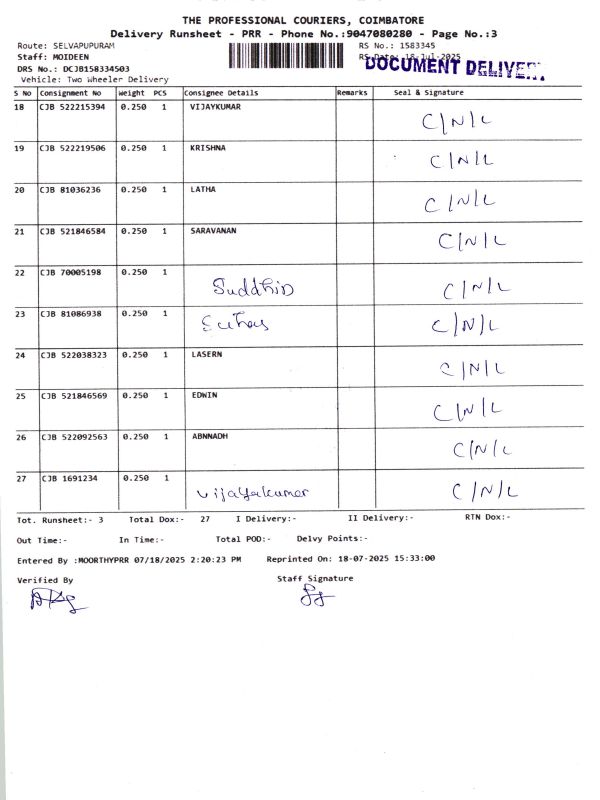 THE PROFESSIONAL COURIERS, COIMBATORE
Delivery Runsheet - PRR - Phone No.:9047080280 - Page No.:3
Route: SELVAPUPURAM RS No.: 1583345
Staff: MOIDEEN RS Date: 18-Jul-2025
DOCUMENT DELIVERY
DRS No.: DCJB158334503
Vehicle: Two Wheeler Delivery
S No Consignment No Weight PCS Consignee Details Remarks Seal & Signature
18 CJB 522215394 0.250 1 VIJAYKUMAR C/N/L
19 CJB 522219506 0.250 1 KRISHNA C/N/L
20 CJB 81036236 0.250 1 LATHA C/N/L
21 CJB 521846584 0.250 1 SARAVANAN C/N/L
22 CJB 70005198 0.250 1 C/N/L
23 CJB 81086938 0.250 1 C/N/L
24 CJB 522038323 0.250 1 LASERN C/N/L
25 CJB 521846569 0.250 1 EDWIN C/N/L
26 CJB 522092563 0.250 1 ABNNADH C/N/L
27 CJB 1691234 0.250 1 vijayakumar C/N/L
Tot. Runsheet:- 3 Total Dox:- 27 I Delivery:- II Delivery:- RTN Dox:-
Out Time:- In Time:- Total POD:- Delvy Points:-
Entered By :MOORTHYPRR 07/18/2025 2:20:23 PM Reprinted On: 18-07-2025 15:33:00
Verified By Staff Signature